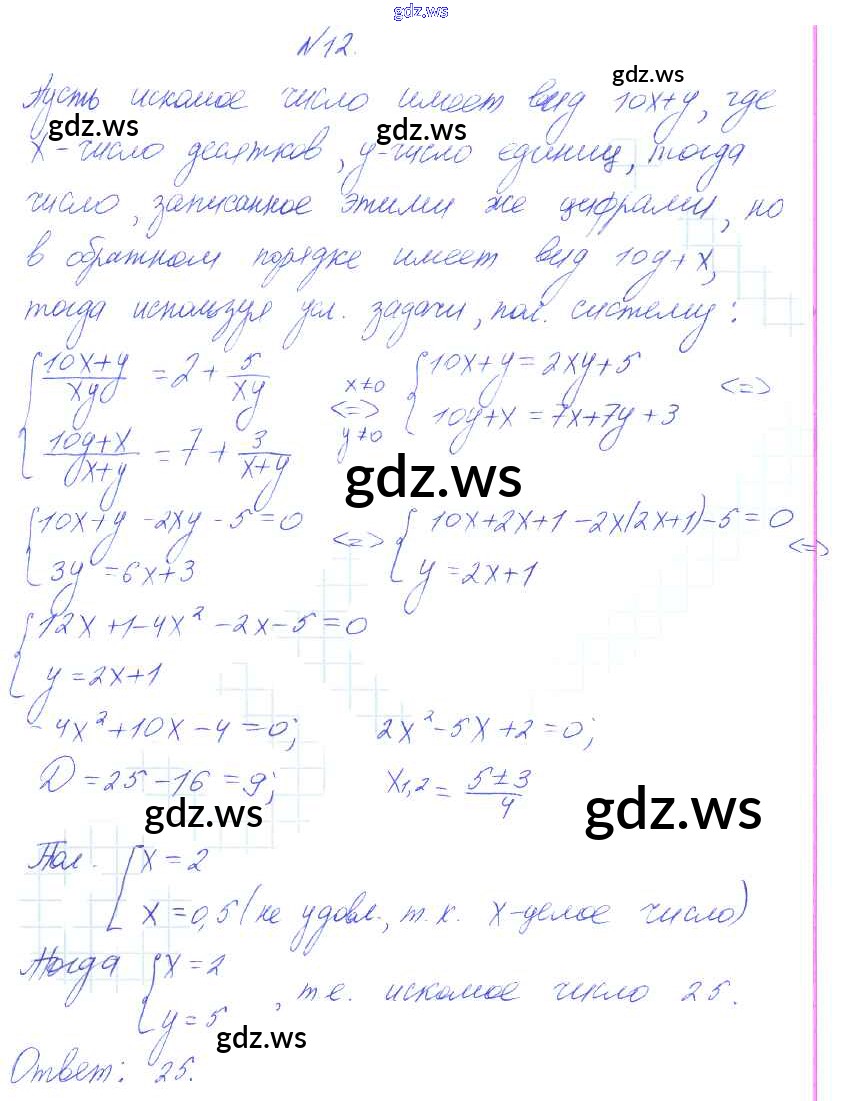 gdz.ws
N12.
gdz.ws
Пусть искомое число имеет вид 10x+y, где
gdz.ws gdz.ws
x-число десятков, y-число единиц, тогда
число, записанное этими же цифрами, но
в обратном порядке имеет вид 10y+x,
тогда используя усл. задачи, пол. систему:
{ (10x+y)/(xy) = 2 + 5/(xy) x≠0 { 10x+y = 2xy+5 <=>
{ (10y+x)/(x+y) = 7 + 3/(x+y) <=> y≠0 { 10y+x = 7x+7y+3
gdz.ws
{ 10x+y-2xy-5=0 <=> { 10x+2x+1-2x(2x+1)-5=0 <=>
{ 3y=6x+3 { y=2x+1
{ 12x+1-4x²-2x-5=0
{ y=2x+1
-4x²+10x-4=0; 2x²-5x+2=0;
D=25-16=9; x1,2 = (5±3)/4
gdz.ws gdz.ws
Пол. [ x=2
[ x=0,5 (не удовл., т.к. x-целое число)
Тогда { x=2
{ y=5 , т.е. искомое число 25.
gdz.ws
Ответ: 25.